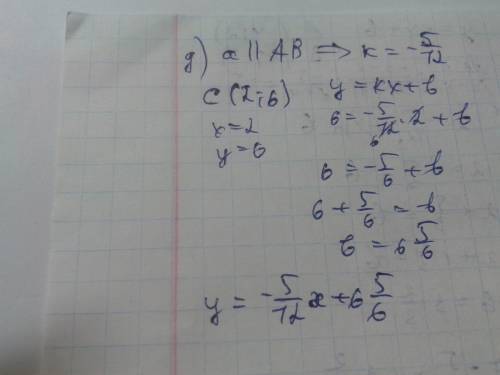 д) a || AB ⟹ k = -5/12
C (2; 6) y = kx + b
x = 2 6 = -5/12 · 2 + b
y = 6 6
6 = -5/6 + b
6 + 5/6 = b
b = 6 5/6
y = -5/12 x + 6 5/6